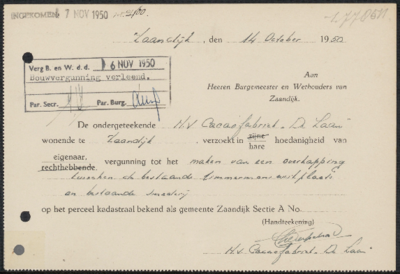 INGEKOMEN 7 NOV 1950
-1.778.511
Zaandijk, den 14 October 1950
Verg B. en W. d.d. 6 NOV 1950
Bouwvergunning verleend.
Par. Secr. Par. Burg.
Aan
Heeren Burgemeester en Wethouders van
Zaandijk.
De ondergeteekende N.V. Cacaofabriek De Zaan
wonende te Zaandijk, verzoekt in zijne hoedanigheid van
hare
eigenaar,
rechthebbende, vergunning tot het maken van een overkapping
tusschen de bestaande timmermanswerkplaats
en bestaande
op het perceel kadastraal bekend als gemeente Zaandijk Sectie A No.
(Handteekening)
N.V. Cacaofabriek De Zaan